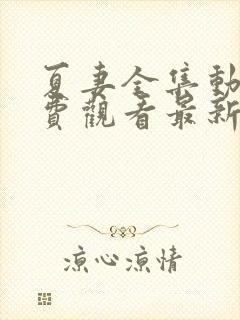 夏妻全集動
費觀看最新
涼心涼情